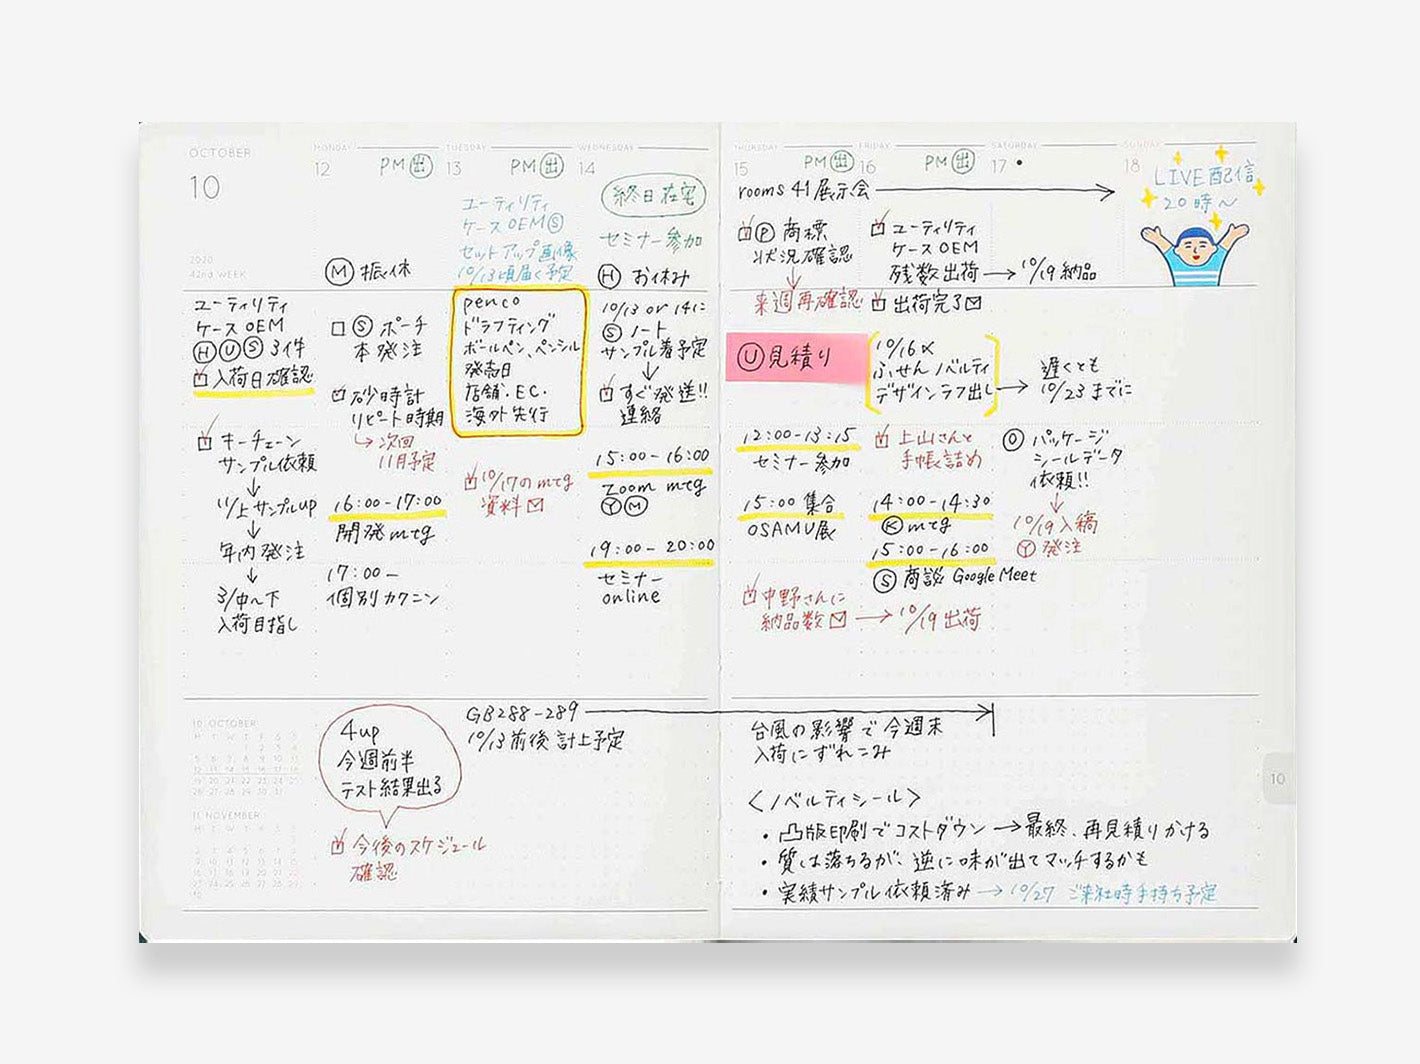 OCTOBER
10
2020
42nd WEEK
ユーティリティ
ケース OEM
Ⓗ Ⓤ Ⓢ 3件
入荷日確認
キーチェーン
サンプル依頼
↓
11/上 サンプルup
↓
年内発注
↓
3/中〜下
入荷目指し
10 OCTOBER
11 NOVEMBER
MONDAY
12 PM 出
Ⓜ 振休
Ⓢ ポーチ
本発注
砂時計
リピート時期
次回
11月予定
16:00-17:00
開発 mtg
17:00-
個別カクニン
4up
今週前半
テスト結果出る
今後のスケジュール
確認
TUESDAY
13 PM 出
ユーティリティ
ケース OEM Ⓢ
セットアップ画像
10/13頃届く予定
penco
ドラフティング
ボールペン、ペンシル
発売日
店舗・EC・
海外先行
10/17のmtg
資料
GB288-289
10/13前後 計上予定
WEDNESDAY
14
終日在宅
セミナー参加
Ⓗ お休み
10/13 or 14に
Ⓢ ノート
サンプル着予定
↓
すぐ発送!!
連絡
15:00-16:00
Zoom mtg
Ⓨ Ⓜ
19:00-20:00
セミナー
online
THURSDAY
15 PM 出
rooms 41 展示会 →
Ⓟ 商標
状況確認
↓
来週再確認
Ⓤ 見積り
12:00-13:15
セミナー参加
15:00 集合
OSAMU展
中野さんに
納品数 → 10/19 出荷
FRIDAY
16 PM 出
ユーティリティ
ケース OEM
残数出荷 → 10/19 納品
出荷完了
10/16〆
ふせんノベルティ
デザインラフ出し →
遅くとも
10/23までに
上山さんと
手帳詰め
14:00-14:30
Ⓚ mtg
15:00-16:00
Ⓢ 商談 Google Meet
SATURDAY
17 •
Ⓞ パッケージ
シールデータ
依頼!!
↓
10/19 入稿
Ⓨ 発注
SUNDAY
18
LIVE配信
20時〜
台風の影響で今週末
入荷にずれこみ
<ノベルティシール>
・凸版印刷でコストダウン → 最終、再見積りかける
・質は落ちるが、逆に味が出てマッチするかも
・実績サンプル依頼済み → 10/27 ご来社時手持ち予定
10